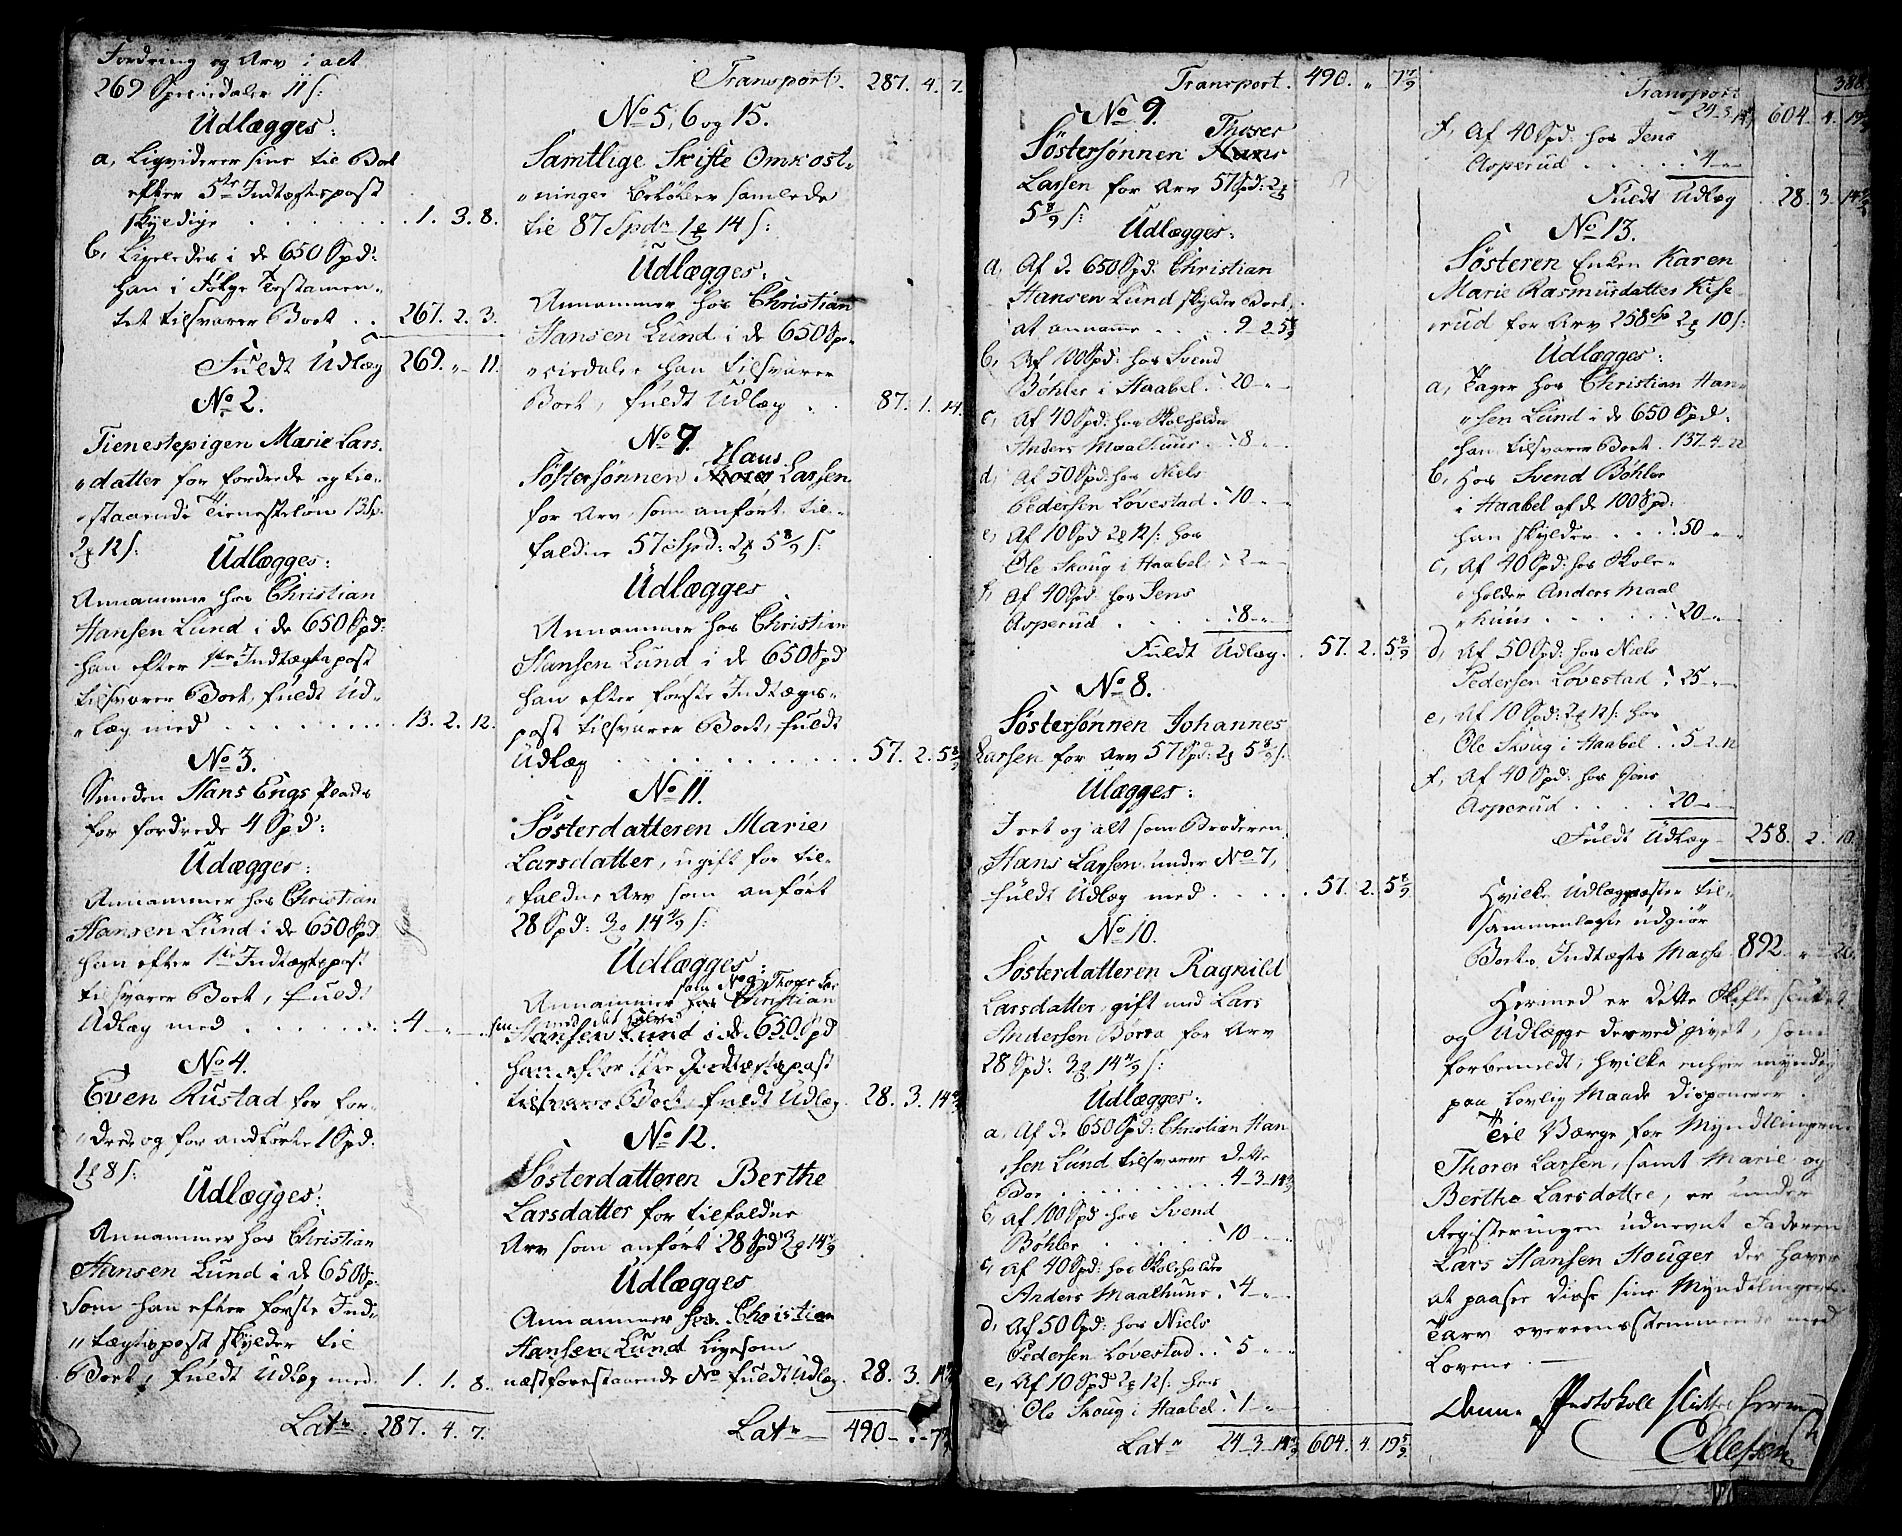 Fordring og Arv i alt
269 Speciedaler 11 s:
Udlægges:
a, Liqviderer sine til Boet
efter 5te Indtægtspost
skyldige . . . . 1. 3. 8.
b, Ligeledes i de 650 Spd:
han i følge Testamen-
tet tilsvarer Boet . . 267. 2. 3.
Fuldt Udlæg 269. " 11.
No 2.
Tienestepigen Marie Lars-
"datter for fordrede og til-
"staaende Tienesteløn 13 Sp.
2 12 s:
Udlægges:
Annammer hos Christian
Hansen Lund i de 650 Spd:
han efter 1ste Indtægtspost
tilsvarer Boet, fuldt Ud-
"læg med . . . . . 13. 2. 12.
No 3.
Smeden Hans Engs
for fordrede 4 Spd:
Udægges:
Annammer hos Christian
Hansen Lund i de 650 Spd
han efter 1ste Indtægtspost
tilsvarer Boet, fuldt
Udlæg med . . . . . 4 - " - "
No 4.
Even Rustad for for-
"drede og for 1 Spd:
1 8 s:
Udlægges:
Annammer hos Christian
Hansen Lund i de 650 Sp.
som han efter første Ind-
"tægtspost skylder til
Boet, fuldt Udlæg med 1. 1. 8.
Lats. 287. 4. 7.
Transport. 287. 4. 7.
No 5, 6 og 15.
Samtlige Skifte Omkost-
"ninger beløber samlede
til 87 Spdr 1 14 s:
Udlægges:
Annammer hos Christian
Hansen Lund i de 650 Sp-
"ciedaler han tilsvarer
Boet, fuldt Udlæg . . 87. 1. 14.
No 7.
Hans
Søstersønnen Thorer Larsen
for Arv som anført til-
faldne 57 Spd: 2 5 8/9 s:
Udlægges
Annammer hos Christian
Hansen Lund i de 650 Spd
han efter første Indtægts-
post tilsvarer Boet, fuldt
Udlæg . . . . . 57. 2. 5 8/9
No 11.
Søsterdatteren Marie
Larsdatter, ugift for til-
"faldne Arv som anført
28 Spd: 3 14 4/9 s:
Udlægges:
som No 9 Thorer Lar
Annammer hos Christian
sen med det halve
Hansen Lund i de 650 Spd
han efter 1ste Indtægtspost
tilsvarer Boet, fuldt Udlæg. 28. 3. 14 4/9
No 12.
Søsterdatteren Berthe
Larsdatter for tilfaldne
Arv som anført 28 Spd 3 14 4/9
Udlægges
Annammer hos Christian
Hansen Lund ligesom
næstforestaaende No fuldt Udlæg. 28. 3. 14 4/9
Lats 490 - " - 7 7/9
Transport. 490. " 7 7/9
No 9.
Thorer
Søstersønnen Hans
Larsen for Arv 57 Spd: 2
5 8/9 s:
Udlægges:
a, Af de 650 Spd: Christian
Hansen Lund skylder Boet,
at annamme . . . . 9 2 5 8/9
b, Af 100 Spd: hos Svend
Bøhler i Haabel . 20 - " -
c, Af 40 Spd: hos Skoleholder
Anders Maalhuus . . 8 - " -
d, Af 50 Spd: hos Niels
Pedersen Løvestad . 10 - " -
e, Af 10 Spd 2 12 s: hos
Ole Skoug i Haabel . 2 - " -
f, Af 40 Spd: hos Jens
Asperud . . . . . 8 - " -
Fuldt Udlæg. . 57. 2. 5 8/9
No 8.
Søstersønnen Johannes
Larsen for Arv 57 Spd: 2 5 8/9 s:
Ulægges:
I eet og alt som Broderen
Hans Larsen under No 7,
fuldt Udlæg med . . . . 57. 2. 5 8/9
No 10.
Søsterdatteren Ragnild
Larsdatter, gift med Lars
Andersen Borra for Arv
28 Spd: 3 14 4/9 s:
Udlægges:
a, Af de 650 Spd: Christian Han
"sen Lund tilsvarer dette
Boe . . . . . . . 4 - 3 - 14 4/9
b, Af 100 Spd hos Svend
Bøhler . . . . . 10 - " -
c, Af 40 Spd: hos Skoleholder
Anders Maalhuus . 4 - " -
d, Af 50 Spd: hos Niels
Pedersen Løvestad . . 5 " "
e, Af 10 Spd 2 12 s: hos
Ole Skoug i Haabel . 1 - "
Lats 24 - 3 - 14 4/9 604. 4. 19 5/9
388
Transport 604. 4. 19 5/9
24 - 3 14 4/9
f, Af 40 Spd: hos Jens
Asperud . . . . . 4 - -
Fuldt Udlæg . 28. 3. 14 4/9
No 13.
Søsteren Enken Karen
Marie Rasmusdatter Kise
"rud for Arv 258 Sp 2 10 s:
Udlægges:
a, Tager hos Christian Han-
"sen Lund i de 650 Spd:
han tilsvarer Boet . 137 - 4 - 22
b, Hos Svend Bøhler
i Haabel af de 100 Spd:
han skylder . . . . 50 - "
c, Af 40 Spd: hos Skole-
"holder Anders Maal
"huus . . . . . . 20 - " -
d, Af 50 Spd: hos Niels
Pedersen Løvestad . 25 - " -
e, Af 10 Spd: 2 12 s: hos
Ole Skoug i Haabel . . 5 - 2 - 12
f, Af 40 Spd: hos Jens
Asperud . . . . . 20 - " -
Fuldt Udlæg - 258. 2. 10.
Hvilke Udlægsposter til-
sammenlagte udgiør
Boets Indtægts Massa 892. " - 20.
Hermed er dette Skifte sluttet
og Udlægge derved givet, som
forbemeldt, hvilke enhver myndig
paa lovlig Maade disponerer.
Til Værge for Myndlingerne
Thorer Larsen, samt Marie og
Berthe Larsdøttre, er under
Registeringen udnevnt Faderen
Lars Hansen Houger der haver
at paasee disse sine Myndlingers
Tarv overeensstemmende med
Lovene. —
Denne Protokoll sluttes hermed
Ellefsen